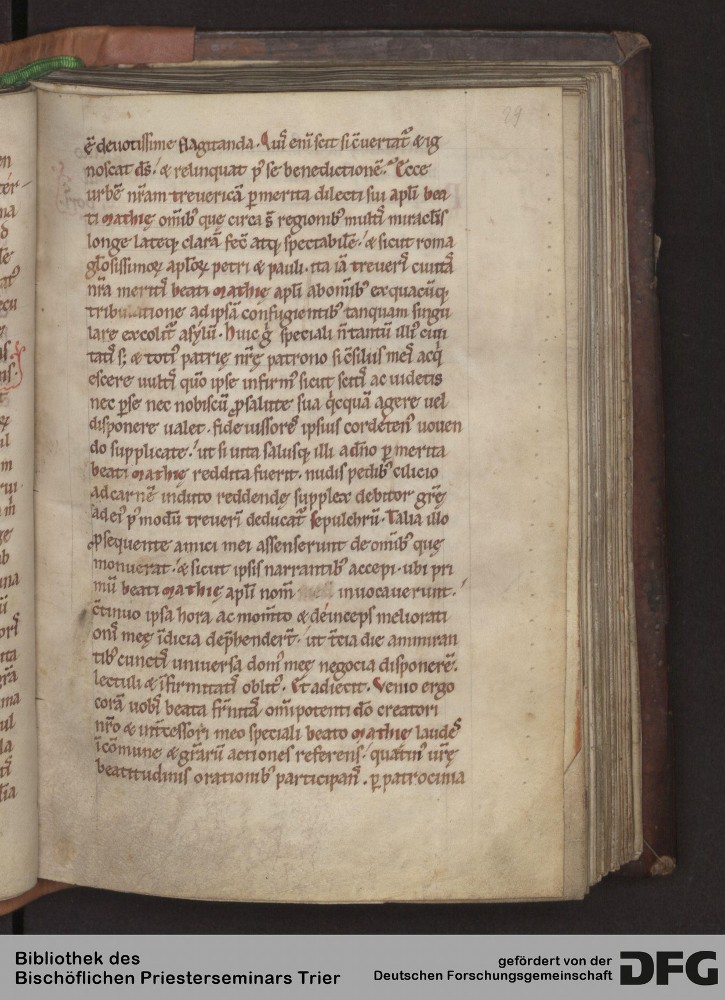 29
ē deuotissime flagitanda. Quis enī scit si cuertat' & ig
noscat ds̄. & relinquat p' se benedictionē. Ecce
urbē nr̄am treuericā p merita dilecti sui apl̄i bea
ti mathię om̄ib' que circa s̄ regionib' multis miraclis
longe lateq; clarā fec̄ atq; spectabilē. & sicut roma
gl̄osissimoꝝ apl̄oꝝ petri & pauli. ita iā treueris ciuitā
nr̄a meritis beati mathię apl̄i ab om̄ib' ex quacūq;
tribulatione ad ipsā confugientib' tanquam singu
lare excolit' asylū. Huic g̊ speciali n̄ tantū illi' ciui
tatis s; & toti' patrię nr̄ę patrono si c̄siliis meis acq̇
escere uultis quō ipse infirm' sicut scitis ac uidetis
nec p se nec nobiscū p salute sua q̇cquā agere uel
disponere ualet. fide uissores ipsius corde ten' uouen
do supplicate. ut si uita salusq; illi a dn̄o p merita
beati mathię reddita fuerit. nudis pedib' cilicio
ad carnē induto reddendę supplex debitor grę̄
ad ei' p' modū treueris deducat' sepulchrū. Talia illo
p sequente amici mei assenserunt de om̄ib' quę
monuerat. & sicut ipsis narrantib' accepi. ubi pri
mū beati mathię apl̄i nom̄ inuocauerunt.
c̄tinuo ipsa hora ac mom̄to & deinceps meliorati
onis meę īdicia dep̄hendert̄. ut t̄cia die ammiran
tib' cunctis uniuersa dom' meę negocia disponerē.
lectuli & īfirmitatis oblit'. Et adiecit. Venio ergo
corā uobis beata fr̄nitas om̄ipotenti dō creatori
nr̄o & int̄cessori meo speciali beato mathię laudes
ī cōmune & gr̄arū actiones referens. quatin' ur̄ę
beatitudinis orationib' participans. p patrocinia
Bibliothek des
Bischöflichen Priesterseminars Trier
gefördert von der
Deutschen Forschungsgemeinschaft
DFG